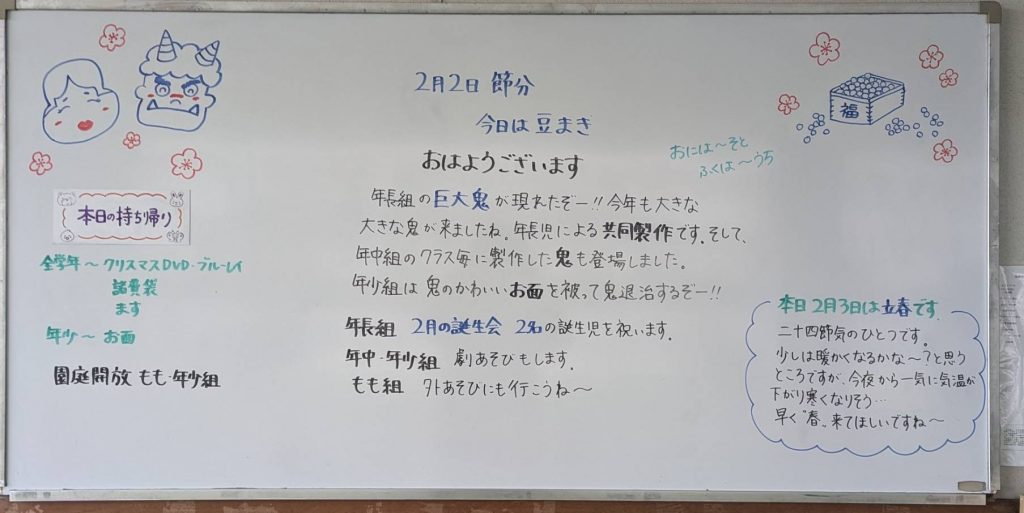 2月2日 節分
今日は 豆まき
おはようございます
おには～そと
ふくは～うち
福
年長組の巨大鬼が現れたぞー!!今年も大きな
大きな鬼が来ましたね。年長児による共同製作です。そして、
年中組のクラス毎に製作した鬼も登場しました。
年少組は鬼のかわいいお面を被って鬼退治するぞー!!
年長組 2月の誕生会 2名の誕生児を祝います。
年中・年少組 劇あそびもします。
もも組 外あそびにも行こうね～
本日の持ち帰り
全学年～クリスマスDVD・ブルーレイ
諸費袋
ます
年少～お面
園庭開放 もも・年少組
本日2月3日は立春です。
二十四節気のひとつです。
少しは暖かくなるかな～？と思う
ところですが、今夜から一気に気温が
下がり寒くなりそう…
早く"春"来てほしいですね～